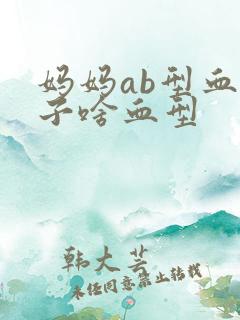 妈妈ab型血
子啥血型
韩大芸
未经同意禁止转载